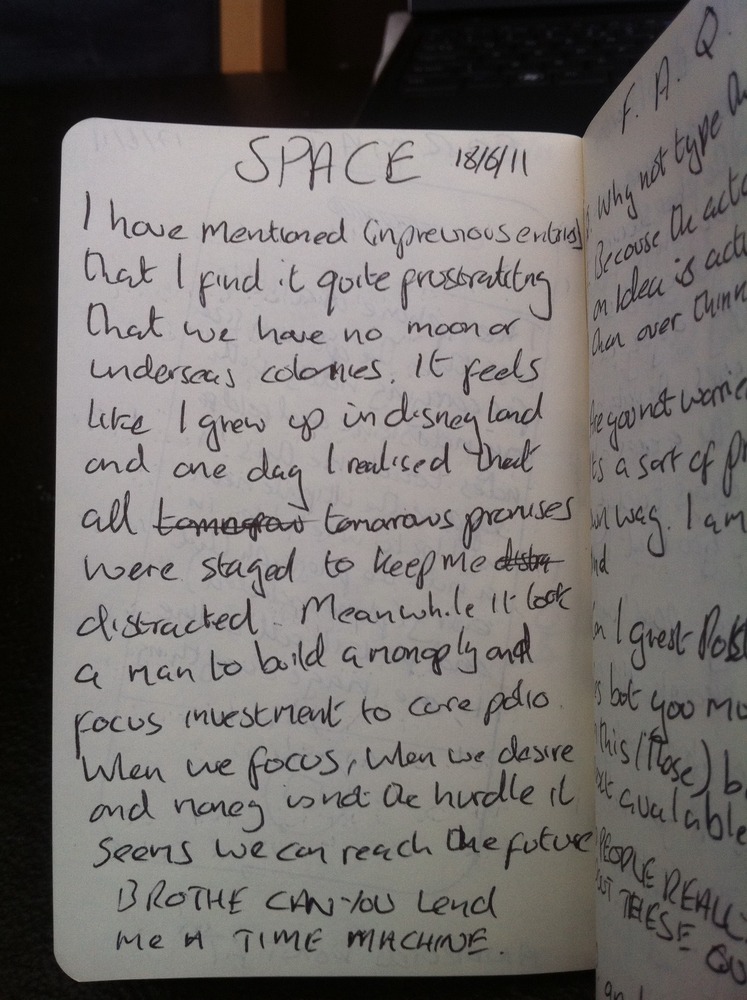 SPACE 18/6/11
I have mentioned (in previous entries)
that I find it quite frustratitng
that we have no moon or
underseas colonies. It feels
like I grew up in disneyland
and one day I realised that
all tomorrow tomorrows promises
were staged to keep me distra
distracted. Meanwhile it took
a man to build a monoply and
focus investment to cure polio.
When we focus, when we desire
and money is not the hurdle it
seems we can reach the future
BROTHE CAN YOU Lend
Me A TIME MACHINE.
F. A. Q.
Why not type
Because the
an Idea is
than over
you not
a sort of
way. I am
I guest
but you
this/(those)
available
PEOPLE
THESE